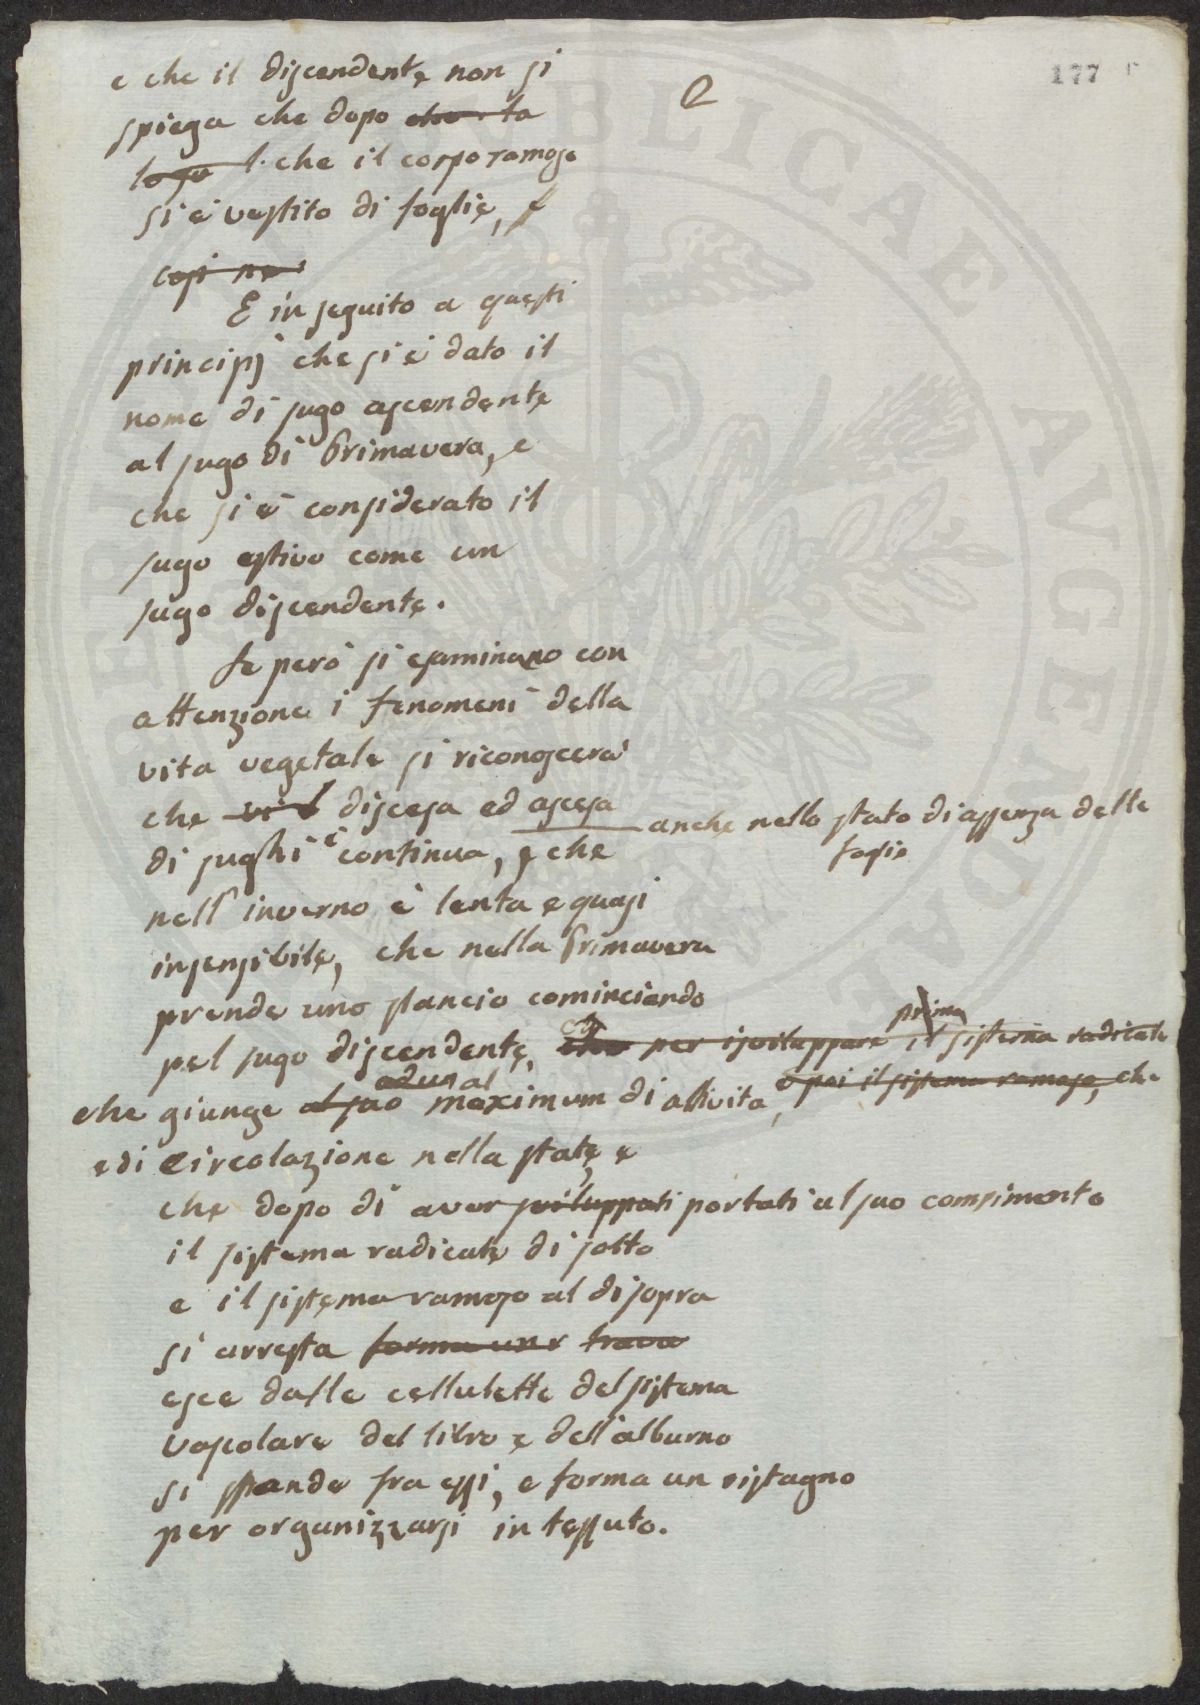 177
2
e che il discendente non si
spiega che dopo che la
che il corpo ramoso
si è vestito di foglie,
così ne
E in seguito a questi
principj che si è dato il
nome di sugo ascendente
al sugo di Primavera, e
che si è considerato il
sugo estivo come un
sugo discendente.
Se però si esaminano con
attenzione i fenomeni della
vita vegetale si riconoscerà
che discesa ed ascesa
anche nello stato di assenza delle
foglie
di sughi è continua, e che
nell'inverno è lenta e quasi
insensibile, che nella Primavera
prende uno slancio cominciando
prima
pel sugo discendente, che per isviluppare il sistema radicale
ad un al
e poi il sistema ramoso, che
che giunge al suo maximum di attività,
e di circolazione nella state, e
che dopo di aver sviluppati portati al suo compimento
il sistema radicale di sotto
e il sistema ramoso al disopra
si arresta forma un trava
esce dalle cellulette del sistema
vascolare del libro e dell'alburno
si spande fra essi, e forma un ristagno
per organizzarsi in tessuto.